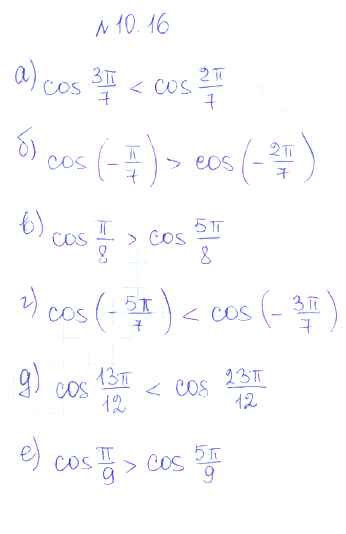 №10.16
а) cos 3π/7 < cos 2π/7
б) cos (-π/7) > cos (-2π/7)
в) cos π/8 > cos 5π/8
г) cos (-5π/7) < cos (-3π/7)
д) cos 13π/12 < cos 23π/12
е) cos π/9 > cos 5π/9